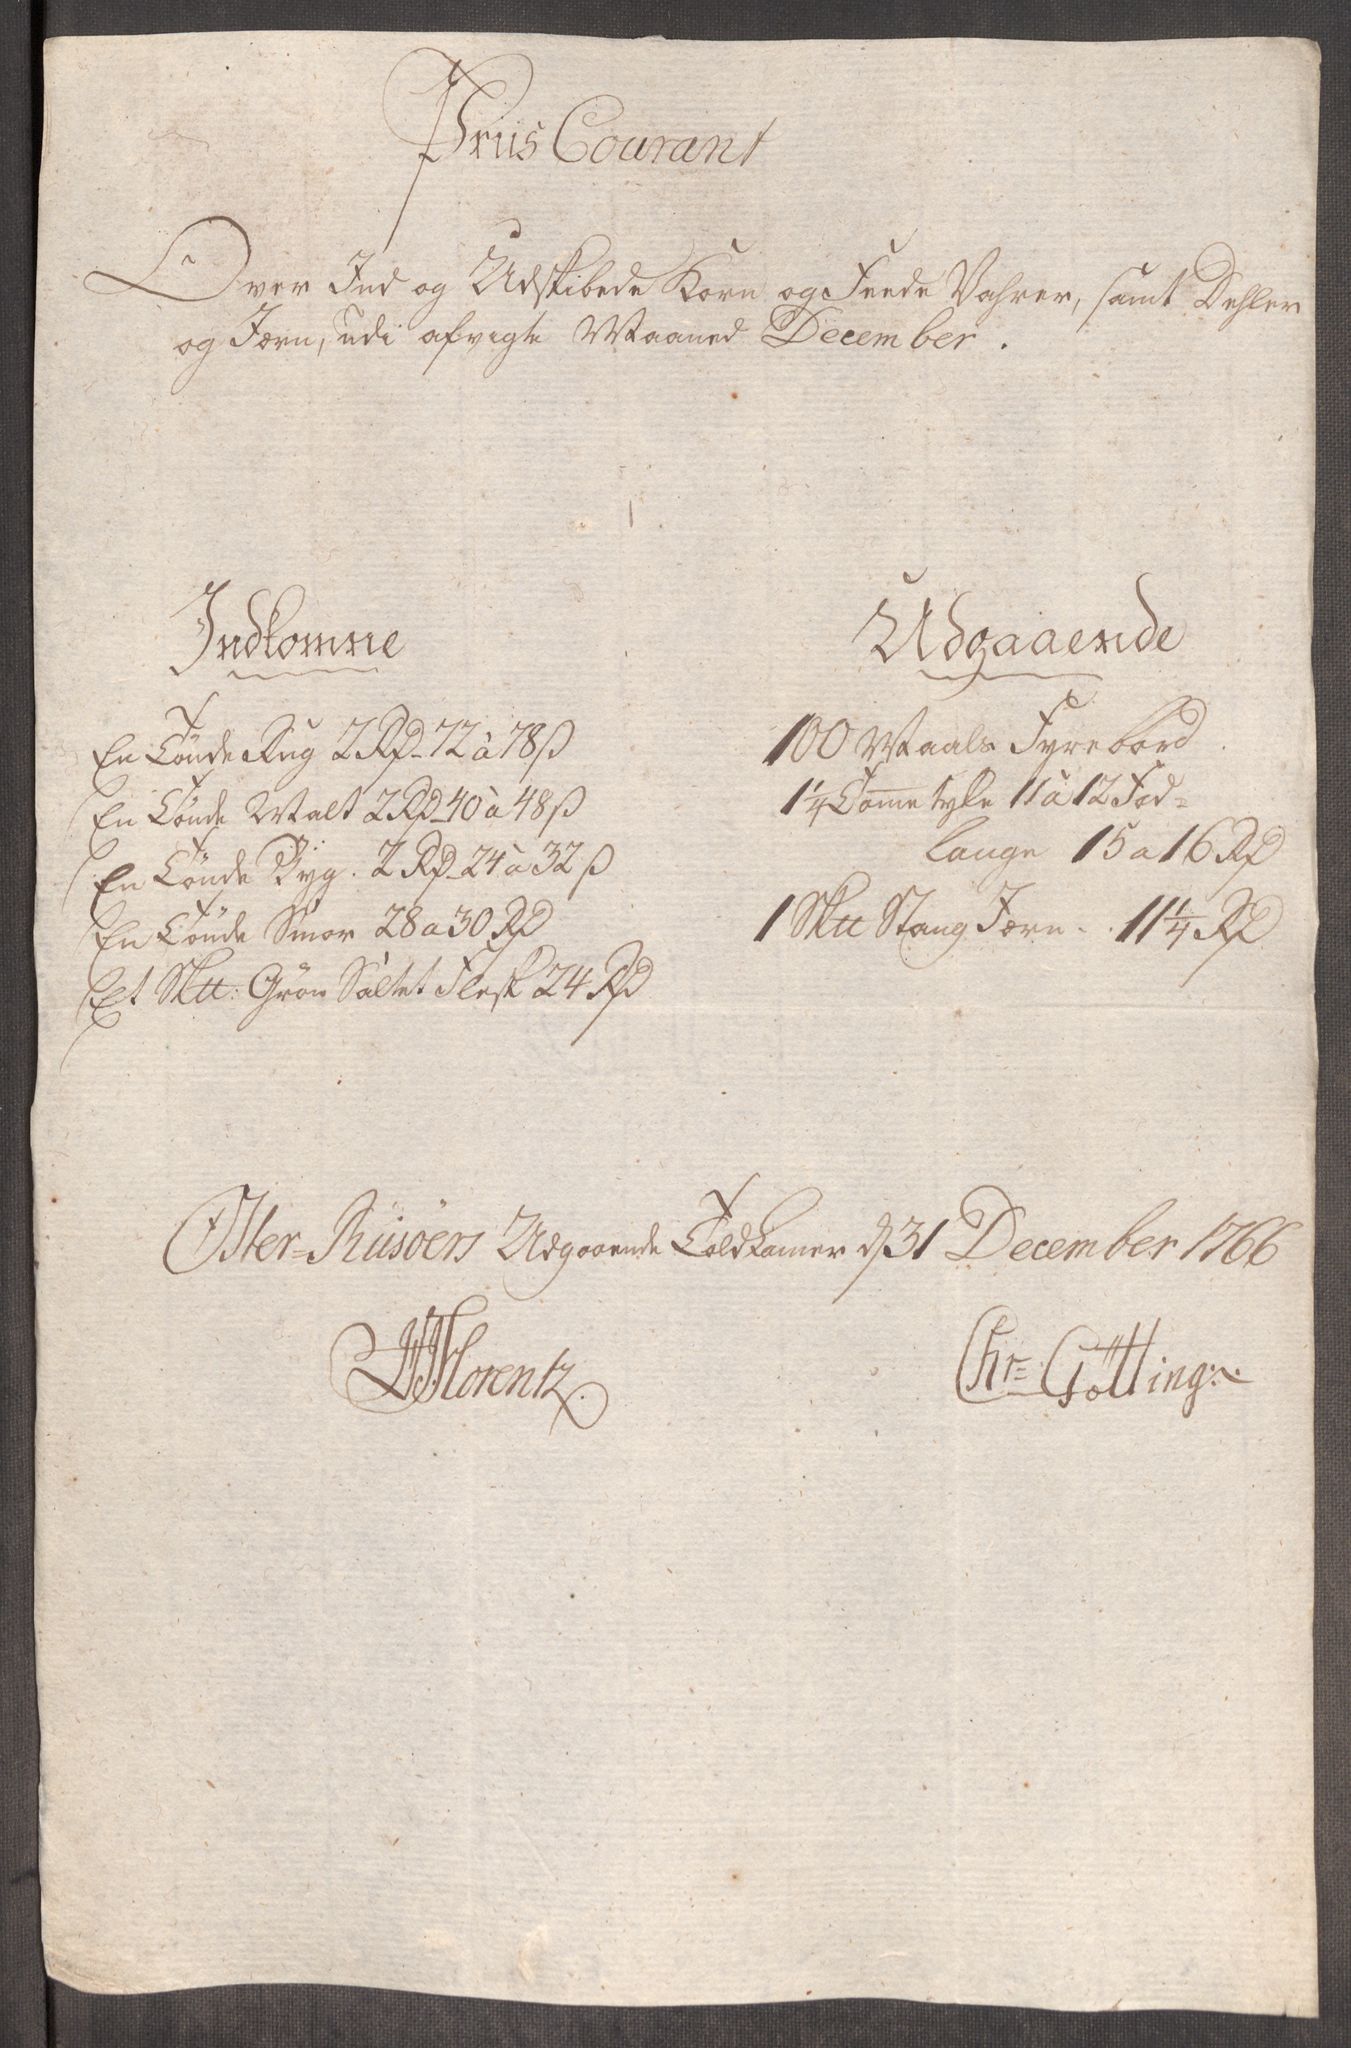 Priis Courant
Over Ind og Udskibede Korn og Feede Vahrer, samt Dehler
og Jærn, udi afvigte Maaned December.
Indkomne
En Tønde Rug 2 Rd 72 a 78 ß
En Tønde Malt 2 Rd 40 a 48 ß
En Tønde Byg. 2 Rd 24 a 32 ß
En Tönde Smør 28 a 30 Rd
Et Sk℔: Grøn Saltet Flesk 24 Rd
Udgaaende
100 Maals Fyrebord
1 1/4 Tomme tyke 11 a 12 Fod=
lange 15 a 16 Rd
1 Sk℔ Stang Jærn . . 11 1/4 Rd
Oster=Riisöers Udgaaende Toldkamer d 31 December 1766
Florentz.
Chr= Götting